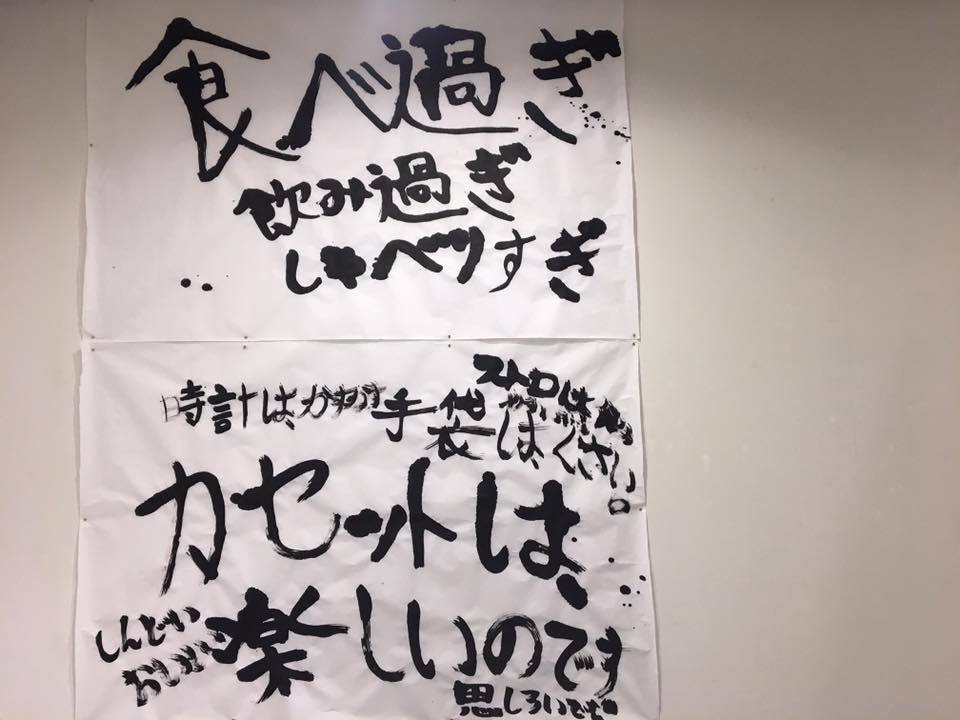 食べ過ぎ
飲み過ぎ
しゃべりすぎ
ストロは
時計は、
手袋は、くさい。
カセットは、
しんどい
楽しいのです
思しろいです